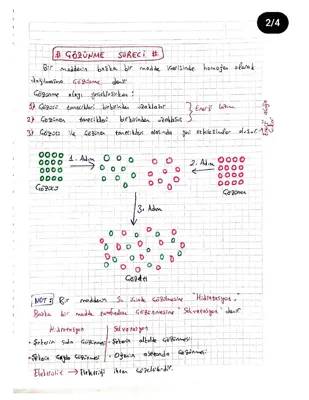 2/4
# GÖZÜNME SÜRECİ #
Bir maddenin başka bir madde içerisinde homojen olarak
dağılmasına çözünme denir
Çözünme olayı gerçekleşirken:
1) Çözücü tanecikleri birbirinden uzaklaşır
2) Çözünen tanecikleri birbirinden uzaklaşır
Enerji
3) Çözücü ile çözünen tanecikleri arasında yeni etkileşimler
1. Adım
2. Adım
Çözücü
Çözünen
3. Adım
Çözelti
NOT: Bir maddenin su içinde çözünmesine "Hidratasyon",
Başka bir madde tarafından çözünmesine "Solvatasyon" denir
Hidratasyon Solvatasyon
- Şekerin suda çözünmesi - Şekerin alkolde çözünmesi
- Şekerin çayda çözünmesi - Ojenin asetonda çözünmesi
Elektrolit → Elektriği ileten çözeltilerdir.